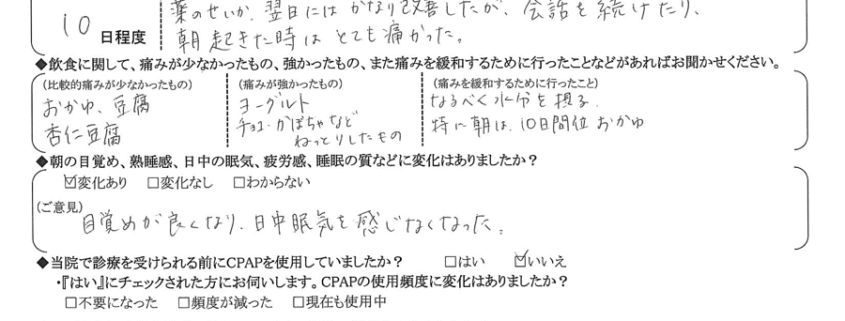 薬のせいか、翌日にはかなり改善したが、会話を続けたり、
10 日程度 朝起きた時はとても痛かった。
◆飲食に関して、痛みが少なかったもの、強かったもの、また痛みを緩和するために行ったことなどがあればお聞かせください。
(比較的痛みが少なかったもの) (痛みが強かったもの) (痛みを緩和するために行ったこと)
おかゆ、豆腐 ヨーグルト なるべく水分を摂る。
杏仁豆腐 チョコ・かぼちゃなど 特に朝は、10日間位おかゆ
ねっとりしたもの
◆朝の目覚め、熟睡感、日中の眠気、疲労感、睡眠の質などに変化はありましたか？
☑変化あり □変化なし □わからない
(ご意見)
目覚めが良くなり、日中眠気を感じなくなった。
◆当院で診療を受けられる前にCPAPを使用していましたか？ □はい ☑いいえ
・『はい』にチェックされた方にお伺いします。CPAPの使用頻度に変化はありましたか？
□不要になった □頻度が減った □現在も使用中